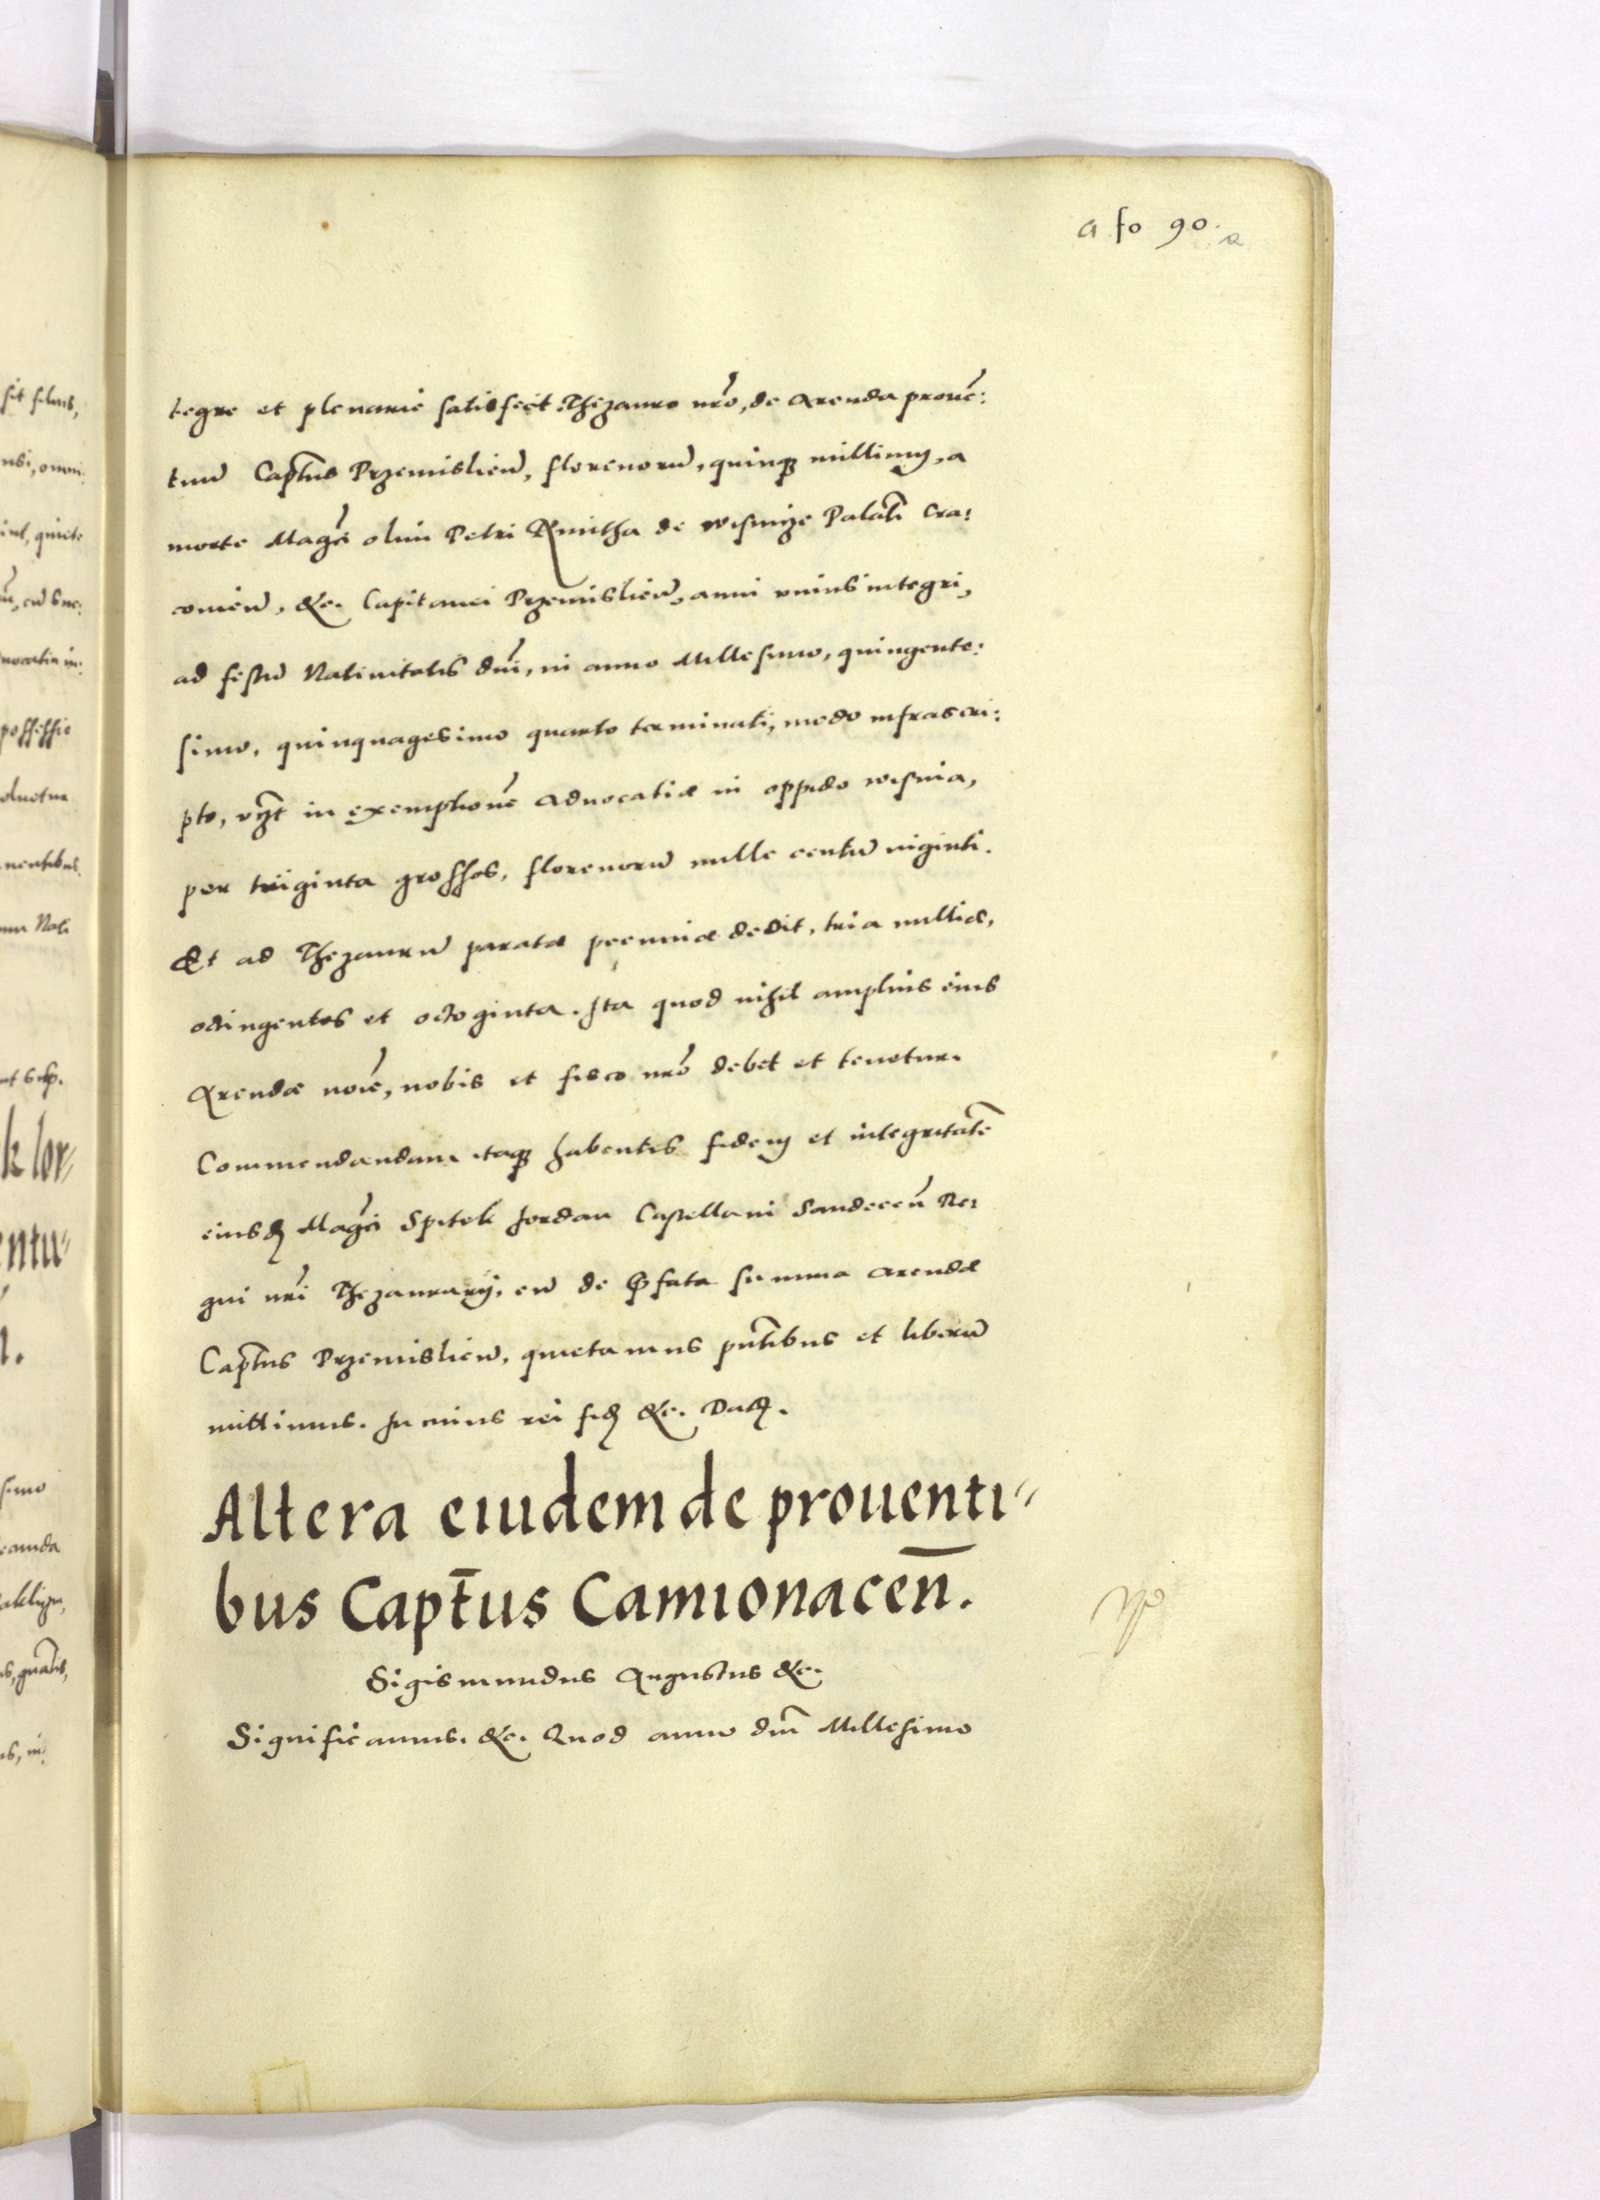 a fo 90.
tegre et plenarie satisfecit Thezauro nr̃o, de Arenda prouẽ:
tuũ Capt̃us Przemislieñ, florenorũ, quinq₃ millium, a
morte Magc̃i olim Petri Kmitha de Wisnize Palat̃i Cra:
comieñ, &c. Capitanei Przemislieñ, anni vnius integri,
ad festũ Natiuitatis dñi, in anno Millesimo, quingente:
simo, quinquagesimo quarto terminati, modo infrascri:
pto, vz̃t in exemptionẽ Aduocatiæ in oppido Wisnia,
per triginta grossos, florenorũ mille centũ viginti.
Et ad Thezaurũ paratæ pecuniæ dedit, tria milliæ,
octingentos et octoginta. Ita quod nihil amplius eius
Arendæ noĩe, nobis et fisco nr̃o debet et tenetur.
Commendandam itaq₃ habentes fidem et integritatẽ
eiusd Magc̃i Spitek Jordan Castellani Sandeceñ Re:
gni nr̃i Thezaurarij, eũ de p̃fata summa Arendæ
Capt̃us Przemislieñ, quietamus pñtibus et liberũ
mittimus. In cuius rei fid &c. Dat.
Altera eiudem de prouenti〃
bus Capt̃us Camionaceñ.
Sigismundus Augustus &c.
Significamus. &c. Quod anno dñi Millesimo